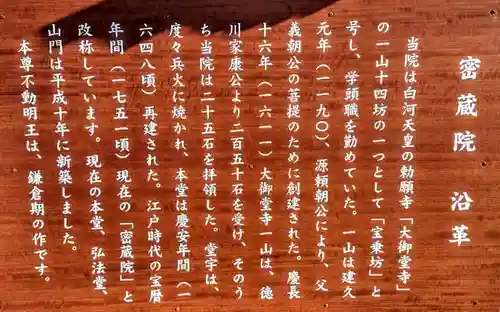 密蔵院 沿革
当院は白河天皇の勅願寺「大御堂寺」
の一山十四坊の一つとして「宝乗坊」と
号し、学頭職を勤めていた。一山は建久
元年（一一九〇）、源頼朝公により、父
義朝公の菩提のために創建された。慶長
十六年（一六一一）大御堂寺一山は、徳
川家康公より二百五十石を受け、そのう
ち当院は二十五石を拝領した。堂宇は、
度々兵火に焼かれ、本堂は慶安年間（一
六四八頃）再建された。江戸時代の宝暦
年間（一七五一頃）現在の「密蔵院」と
改称しています。現在の本堂、弘法堂、
山門は平成十年に新築しました。
本尊不動明王は、鎌倉期の作です。